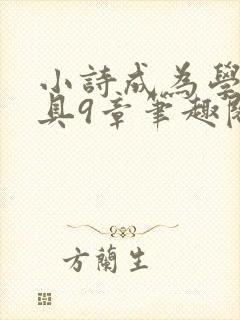 小詩成為學
具9章筆趣閣
方蘭生